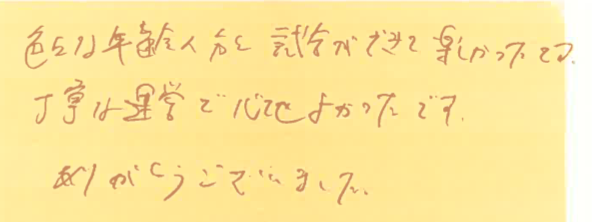 色々な年齢の人方と試合ができて楽しかったです。
丁寧な運営で心地よかったです。
ありがとうございました。